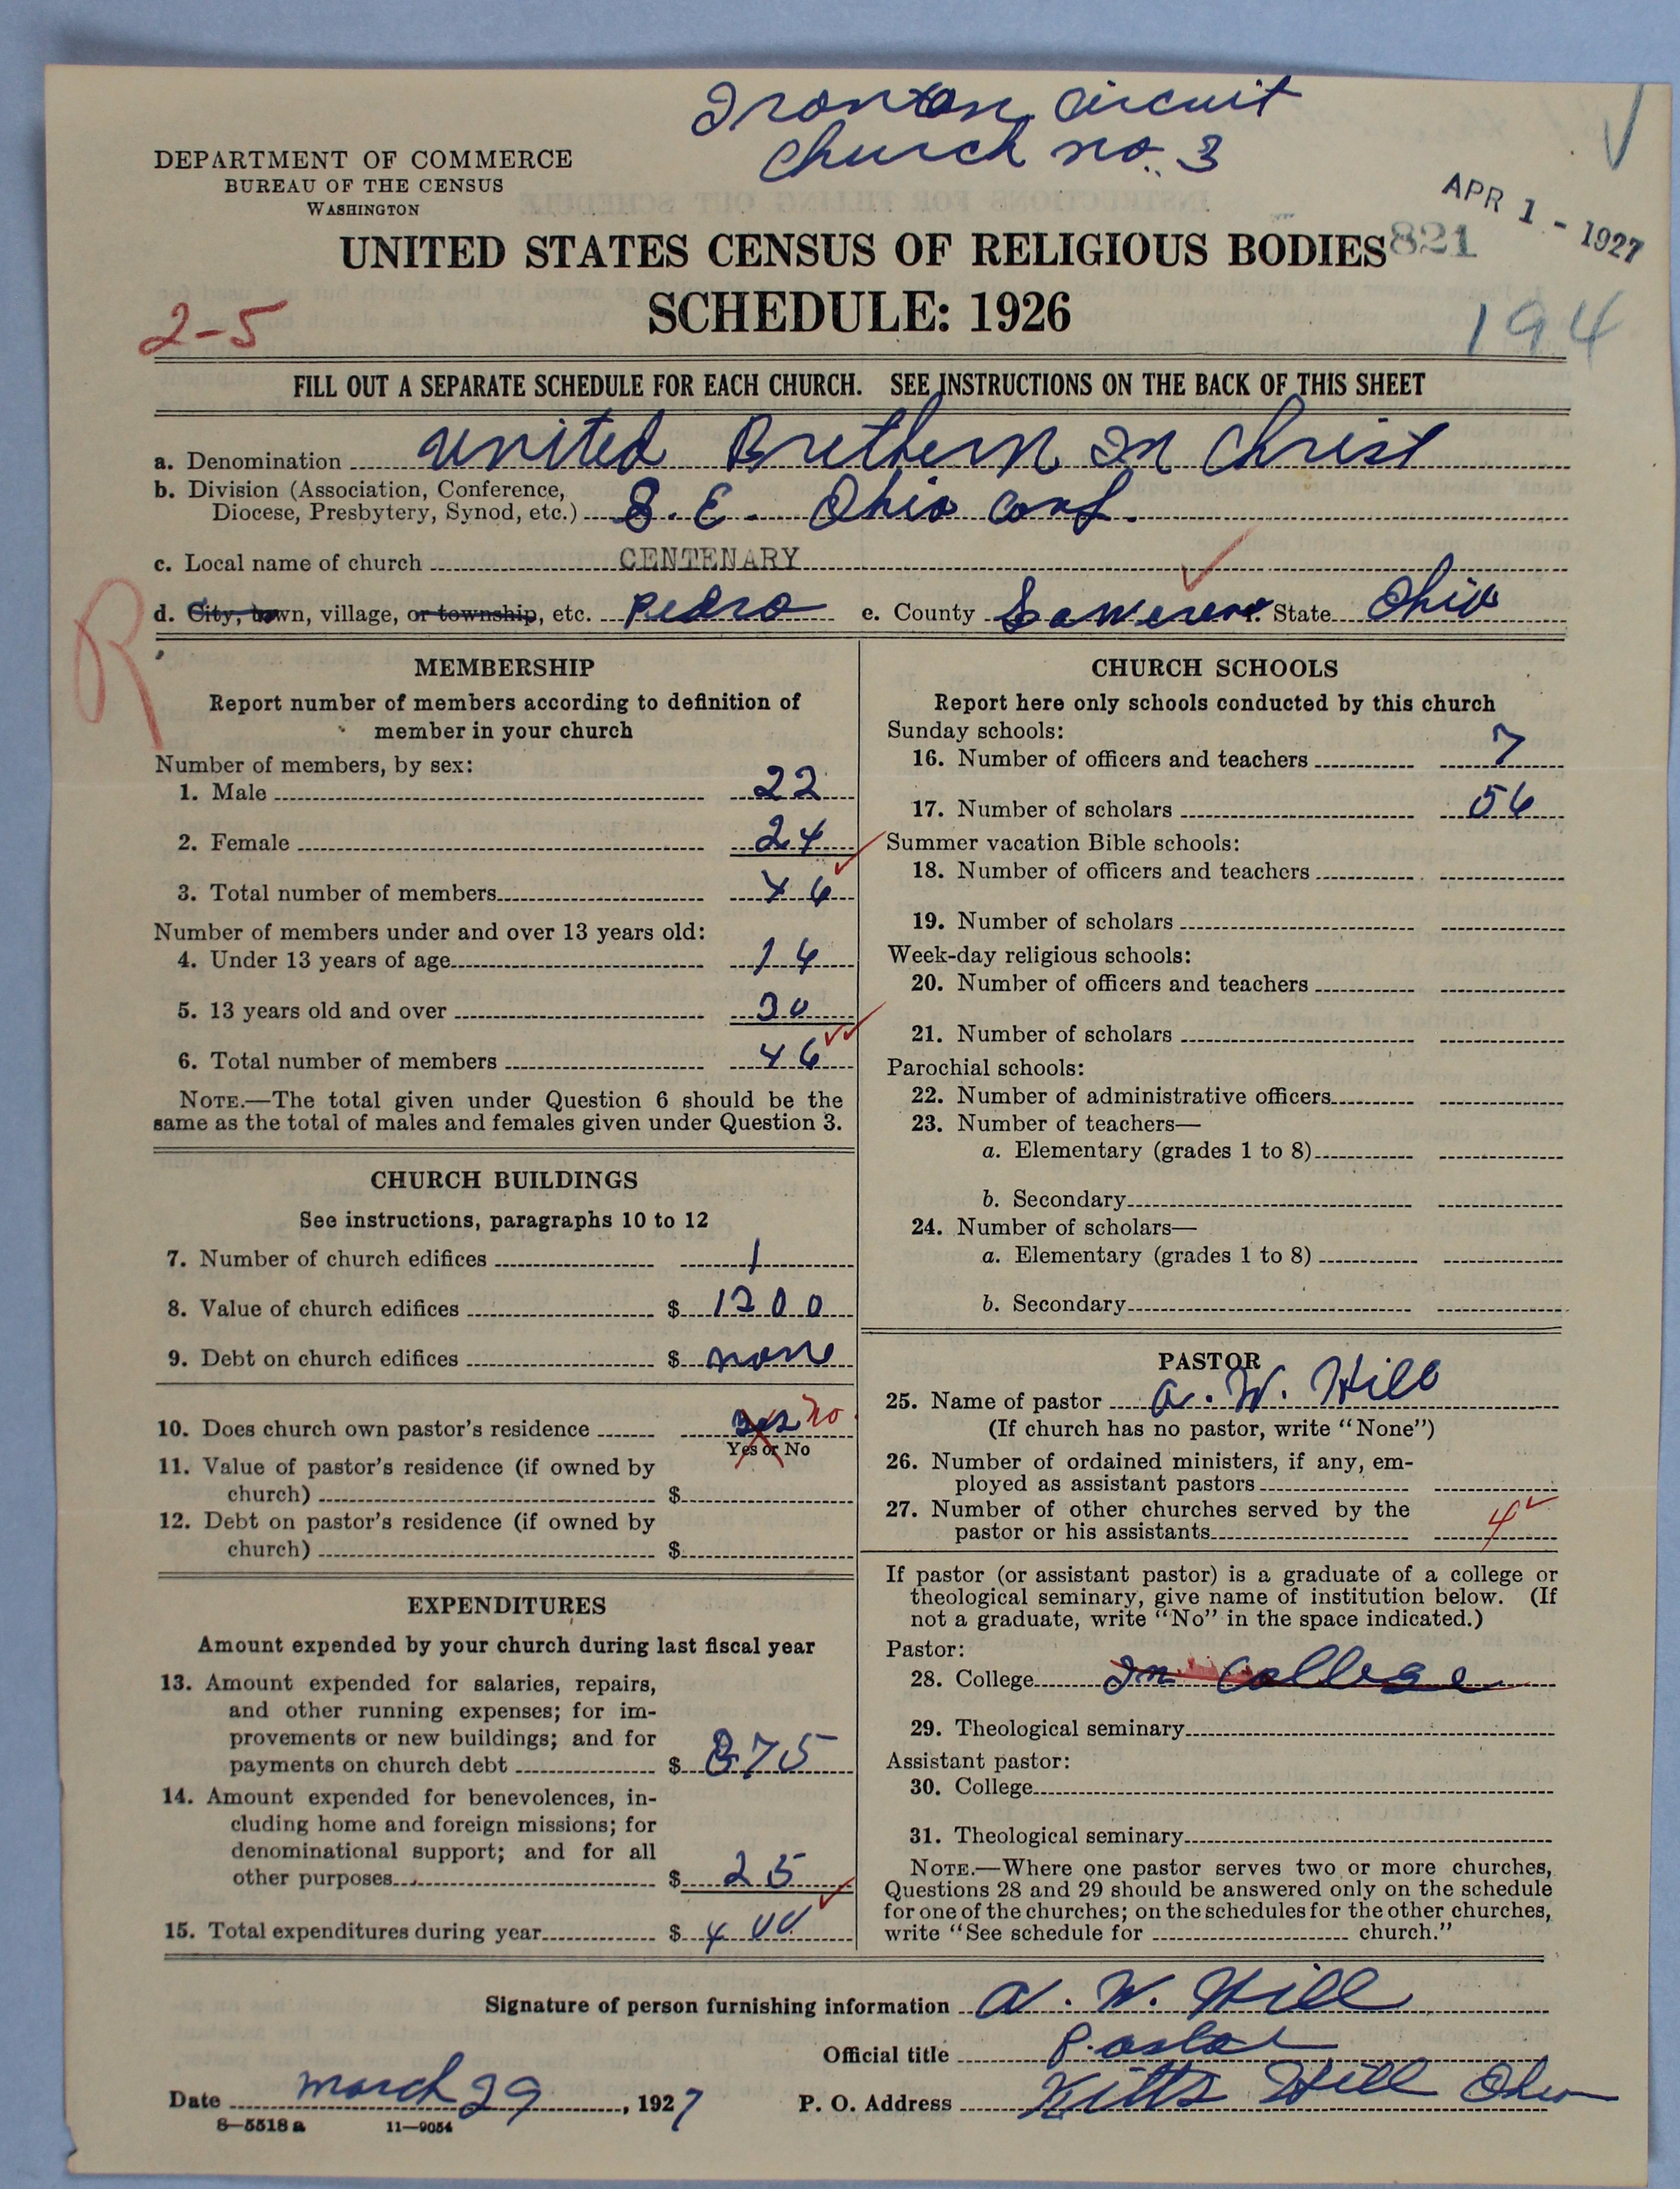 Ironton Circuit
Church no. 3
DEPARTMENT OF COMMERCE
BUREAU OF THE CENSUS
WASHINGTON
APR 1 - 1927
821
UNITED STATES CENSUS OF RELIGIOUS BODIES
SCHEDULE: 1926
2-5
194
FILL OUT A SEPARATE SCHEDULE FOR EACH CHURCH. SEE INSTRUCTIONS ON THE BACK OF THIS SHEET
a. Denomination United Brethern In Christ
b. Division (Association, Conference,
Diocese, Presbytery, Synod, etc.) S. E. Ohio Conf.
c. Local name of church CENTENARY
d. City, town, village, or township, etc. Pedro e. County Lawerence State Ohio
R
MEMBERSHIP
Report number of members according to definition of
member in your church
Number of members, by sex:
1. Male 22
2. Female 24
3. Total number of members 46
Number of members under and over 13 years old:
4. Under 13 years of age 14
5. 13 years old and over 30
6. Total number of members 46
NOTE.—The total given under Question 6 should be the
same as the total of males and females given under Question 3.
CHURCH BUILDINGS
See instructions, paragraphs 10 to 12
7. Number of church edifices 1
8. Value of church edifices $ 1200
9. Debt on church edifices $ none
10. Does church own pastor's residence yes no
Yes or No
11. Value of pastor's residence (if owned by
church) $
12. Debt on pastor's residence (if owned by
church) $
EXPENDITURES
Amount expended by your church during last fiscal year
13. Amount expended for salaries, repairs,
and other running expenses; for im-
provements or new buildings; and for
payments on church debt $ 375
14. Amount expended for benevolences, in-
cluding home and foreign missions; for
denominational support; and for all
other purposes $ 25
15. Total expenditures during year $ 400
CHURCH SCHOOLS
Report here only schools conducted by this church
Sunday schools:
16. Number of officers and teachers 7
17. Number of scholars 56
Summer vacation Bible schools:
18. Number of officers and teachers
19. Number of scholars
Week-day religious schools:
20. Number of officers and teachers
21. Number of scholars
Parochial schools:
22. Number of administrative officers
23. Number of teachers—
a. Elementary (grades 1 to 8)
b. Secondary
24. Number of scholars—
a. Elementary (grades 1 to 8)
b. Secondary
PASTOR
25. Name of pastor A. W. Hill
(If church has no pastor, write "None")
26. Number of ordained ministers, if any, em-
ployed as assistant pastors
27. Number of other churches served by the
pastor or his assistants 4
If pastor (or assistant pastor) is a graduate of a college or
theological seminary, give name of institution below. (If
not a graduate, write "No" in the space indicated.)
Pastor:
28. College In College
29. Theological seminary
Assistant pastor:
30. College
31. Theological seminary
NOTE.—Where one pastor serves two or more churches,
Questions 28 and 29 should be answered only on the schedule
for one of the churches; on the schedules for the other churches,
write "See schedule for church."
Signature of person furnishing information A. W. Hill
Official title Pastor
Date March 29, 1927 P. O. Address Kitts Hill Ohio
8—5518 a 11—9054